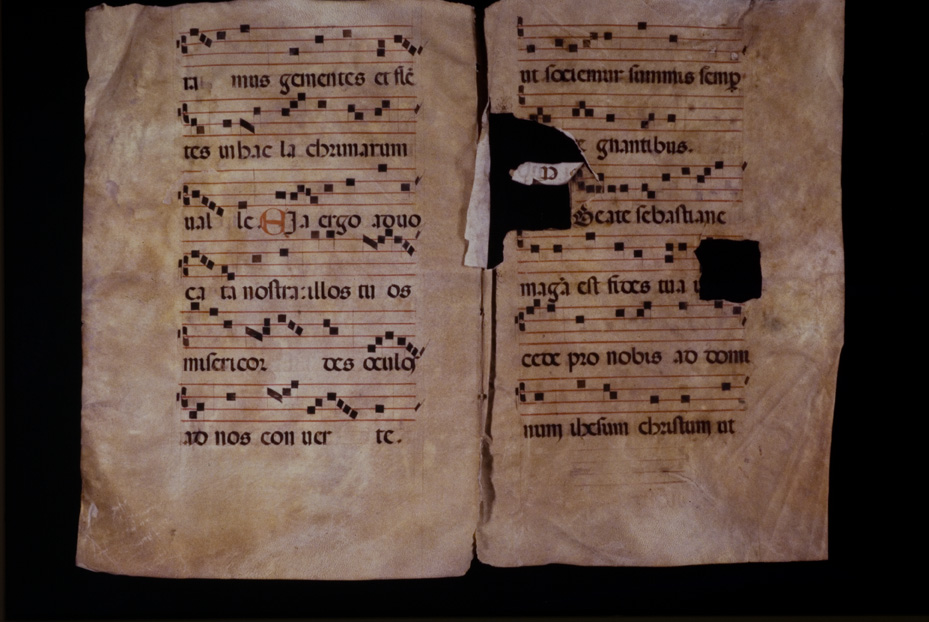 ra mus gementes et flē
tes in hac la chrimarum
ual le. Eja ergo aduo
ca ta nostra: illos tu os
misericor des oculos
ad nos con uer te.
ut sociemur summis semp
gnantibus.
Beate sebastiane
magā est fides tua
cede pro nobis ad domi
num ihesum christum ut